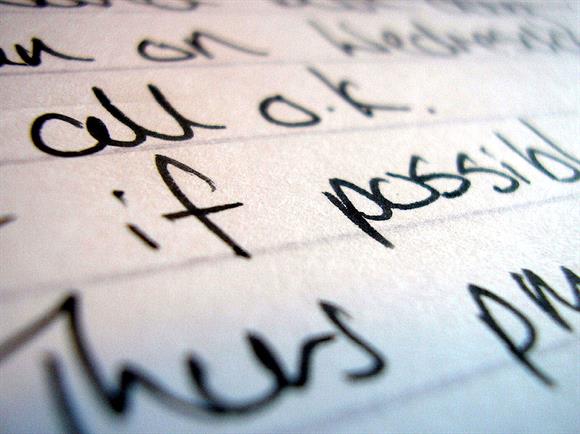 on Wednesd
all o.k.
- if possibl
Thurs pm